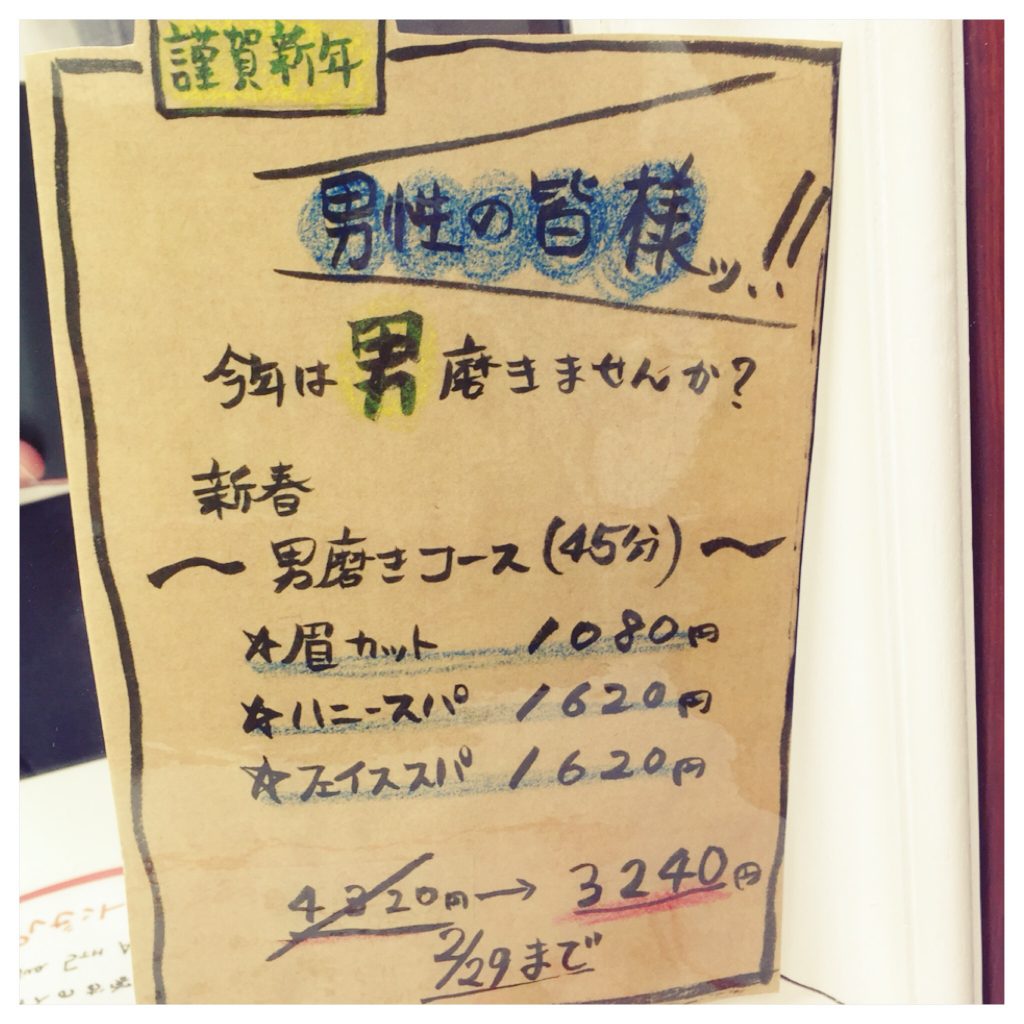 謹賀新年
男性の皆様ッ!!
今年は男磨きませんか?
新春
〜男磨きコース(45分)〜
☆眉カット 1080円
☆ハニースパ 1620円
☆フェイススパ 1620円
4320円→3240円
2/29まで